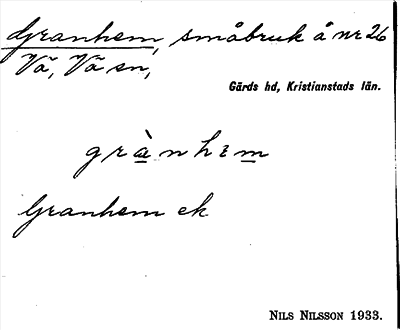 Granhem, småbruk å nr 26
Vä, Vä sn,
Gärds hd, Kristianstads län.
grànhɛm
Granhem ek
NILS NILSSON 1933.